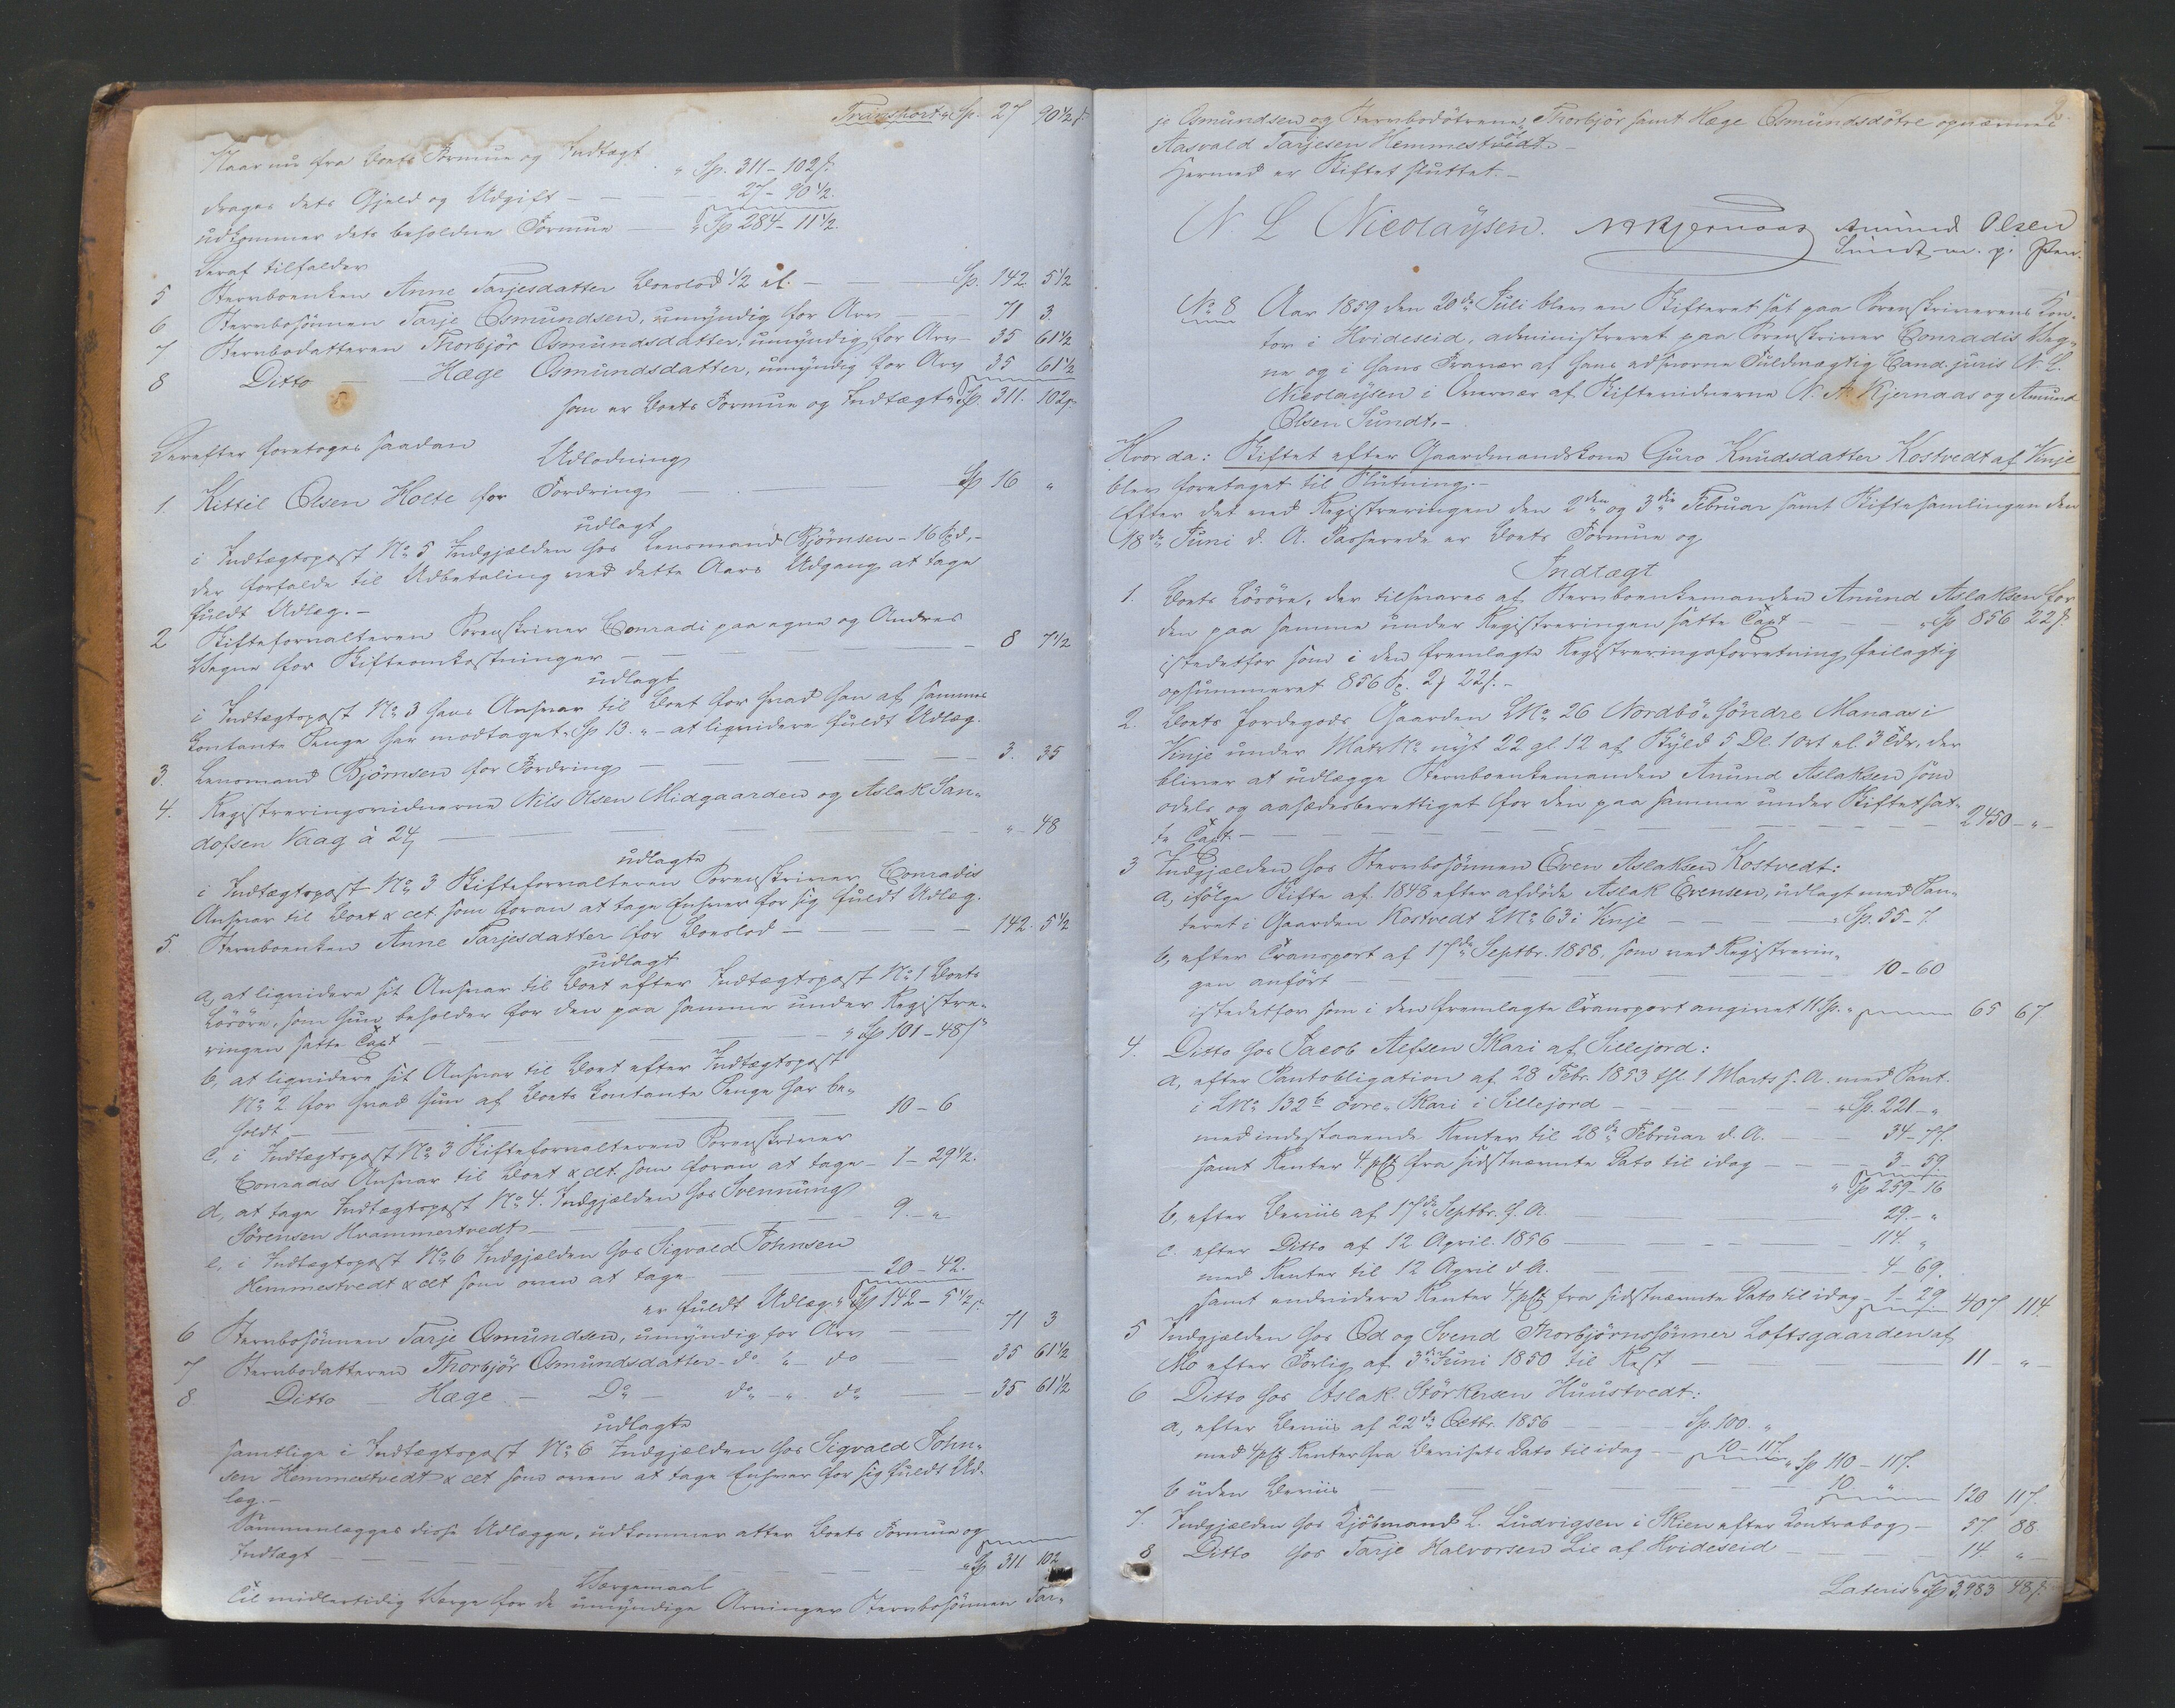 Transport " Sp. 27 90½ s.
Naar nu fra Boets Formue og Indtægt " Sp. 311 - 102 s.
drages dets Gjeld og Udgift — 27 - 90½.
udkommer dets beholdne Formue — " Sp 284 - 11½.
Deraf tilfalder
5 Stervboenken Anne Tarjesdatter Boeslod ½ el. — Sp. 142. 5½
6 Stervbosönnen Tarje Osmundsen, umyndig for Arv — 71 3.
7. Stervbodatteren Thorbjör Osmundsdatter, umyndig for Arv — 35 61½
8 Ditto — Hæge Osmundsdatter, umyndig for Arv 35 61½
som er Boets Formue og Indtægt " Sp. 311. 102 s.
Derefter foretoges saadan
Udlodning
1. Kittil Olsen Holte for Fordring — Sp 16 "
udlagt
i Indtægtspost No 5 Indgjælden hos Lensmand Björnsen - 16 Spd, -
der forfalde til Udbetaling ved dette Aars Udgang at tage
fuldt Udlæg. -
2 Skifteforvalteren Sorenskriver Conradi paa egne og Andres
Vegne for Skifteomkostninger — 8 7½
udlagt
i Indtægtspost No 3 hans Ansvar til Boet for hvad han af sammes
Contante Penge har modtaget " Sp 13. " - at liqvidere fuldt Udlæg.
3. Lensmand Björnsen for Fordring — 3. 35
4. Registreringsvidnerne Nils Olsen Midgaarden og Aslak San-
dofsen Vaag à 24 s — " 48
udlagte
i Indtægtspost No 3 Skifteforvalteren Sorenskriver Conradis
Ansvar til Boet & ct som foran at tage Enhver for sig fuldt Udlæg.
5. Stervboenken Anne Tarjesdatter for Boeslod — 142. 5½
udlagt
a, at liqvidere sit Ansvar til Boet efter Indtægtspost No 1 Boets
Lösöre, som hun beholder for den paa samme under Registre-
ringen satte Taxt — " Sp 101 - 48 s
b, at liqvidere sit Ansvar til Boet efter Indtægtspost
No 2 for hvad hun af Boets Contante Penge har be-
holdt — 10 - 6
c, i Indtægtspost No 3 Skifteforvalteren Sorenskriver
Conradis Ansvar til Boet & ct som foran at tage - 1 - 29½.
d, at tage Indtægtspost No 4. Indgjælden hos Svennung
Sörensen Hvammertvedt — 9. - "
e, i Indtægtspost No 6 Indgjælden hos Sigvald Johnsen
Hemmestvedt & ct som oven at tage — 20 - 42.
er fuldt Udlæg " Sp 142 - 5½ s.
6 Stervbosönnen Tarje Osmundsen, umyndig for Arv — 71 3
7 Stervbodatteren Thorbjör Osmundsdatter - do " do — 35 61½
8 Ditto — Hæge — Do — do - " do — 35 61½
udlagte
samtlige i Indtægtspost No 6 Indgjælden hos Sigvald John-
sen Hemmestvedt & ct som oven at tage Enhver for sig fuldt Ud-
læg. -
Sammenlægges disse Udlægge, udkommer atter Boets Formue og
Indtægt — " Sp 311 102
Værgemaal
Til midlertidig Værge for de umyndige Arvinger Stervbosönnen Tar-
2.
je Osmundsen og Stervbodötrene Thorbjör samt Hæge Osmundsdötre opnævnes
Aasvald Tarjesen Hemmestvedt. -
Hermed er Skiftet sluttet. -
N L Nicolaÿsen. N A Kjernaas Amund Olsen
Sundt m. p. Pen.
No 8 Aar 1859 den 20de Juli blev en Skifteret sat paa Sorenskriverens Con-
tor i Hvideseid, administreret paa Sorenskriver Conradis Veg-
ne og i hans Fravær af hans edsvorne Fuldmægtig Cand. juris N. L.
Nicolaÿsen i Overvær af Skiftevidnerne N. A. Kjernaas og Amund
Olsen Sundt, -
Hvor da: Skiftet efter Gaardmandskone Guro Knudsdatter Kostvedt af Vinje
blev foretaget til Slutning. -
Efter det ved Registreringen den 2den og 3die Februar samt Skiftesamlingen den
18de Juni d. A. Passerede er Boets Formue og
Indtægt
1. Boets Lösöre, der tilsvares af Stervboenkemanden Anund Aslaksen for
den paa samme under Registreringen satte Taxt — " Sp 856 22 s.
istedetfor som i den fremlagte Registreringsforretning feilagtig
opsummeret 856 Sp. 2 22 s. -
2. Boets Jordegods Gaarden LNo 26 Nordbö söndre Manaas i
Vinje under Matr No nyt 22 gl. 12 af Skyld 5 Dl. 1 Ort el. 3 Tdr, der
bliver at udlægge Stervboenkemanden Anund Aslaksen som
odels og aasædesberettiget for den paa samme under Skiftet sat-
te Taxt — 2450 - " -
3 Indgjælden hos Stervbosönnen Even Aslaksen Kostvedt:
a, ifölge Skifte af 1848 efter afdöde Aslak Evensen, udlagt med Pan-
teret i Gaarden Kostvedt LNo 63 i Vinje — " Sp. 55 - 7.
b, efter Transport af 17de Septbr. 1858, som ved Registrerin-
gen anfört — 10 - 60
istedetfor som i den fremlagte Transport angivet 11 Sp. " 65 67.
4. Ditto hos Jacob Alfsen Skari af Sillejord:
a, efter Pantobligation af 28 Febr. 1853 thl. 1 Marts s. A. med Pant.
i LNo 132b övre Skari i Sillejord — " Sp. 221 - "
med indestaaende Renter til 28de Februar d. A. — 34 - 77.
samt Renter 4 pCt fra sidstnævnte Dato til idag — 3 - 59
" Sp 259 - 16
b, efter Beviis af 17de Septbr. f. A. — 29 - "
c. efter Ditto af 12 April. 1856 — 114. "
med Renter til 12 April d A. — 4 - 69.
samt endvidere Renter 4 pCt fra sidstnævnte Dato til idag - 1 - 29 407 114.
5 Indgjælden hos Od og Svend Thorbjörnssönner Loftsgaarden af
Mo efter Forlig af 3die Juni 1850 til Rest — 11 - " -
6 Ditto hos Aslak Störkersen Huustvedt:
a, efter Beviis af 22de Octbr. 1856 — Sp. 100. "
med 4 pCt Renter fra Bevisets Dato til idag — 10 - 117. " Sp 110 - 117.
b uden Beviis — 10 " 120 117.
7. Indgjælden hos Kjöbmand L. Ludvigsen i Skien efter Contrabog — 57. 88.
8 Ditto hos Tarje Halvorsen Lie af Hvideseid — 14. " -
Lateris " Sp 3,983 48 s.